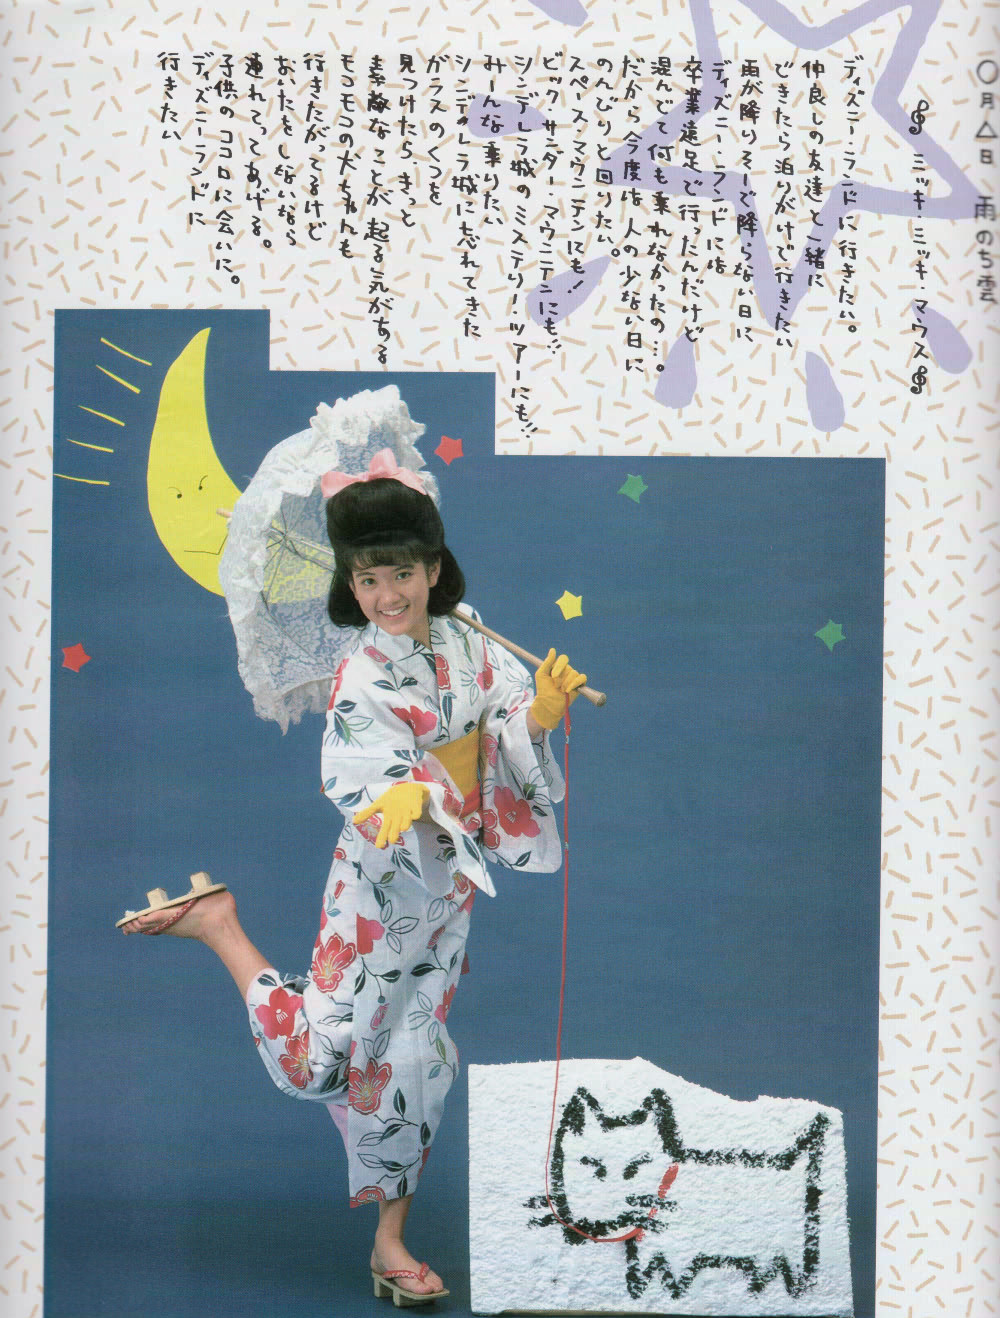 〇月△日 雨のち雲
ミッキ・ミッキ・マウス
ディズニー・ランドに行きたい。
仲良しの友達と一緒に
できたら泊りがけで行きたい
雨が降りそーで降らない日に
ディズニーランドには
卒業遠足で行ったんだけど
混んでて何も乗れなかったの…。
だから今度は人の少ない日に
のんびりと回りたい。
スペース・マウンテンにも!
ビック・サンダー・マウンテンにも!!
シンデレラ城のミステリー・ツアーにも!!
みーんな乗りたい
シンデレラ城に忘れてきた
ガラスのくつを
見つけたら、きっと
素敵なことが起る気がする
モコモコの犬ちゃんも
行きたがってるけど
ないたをしないなら
連れてってあげる。
子供のココロに会いに。
ディズニーランドに
行きたい